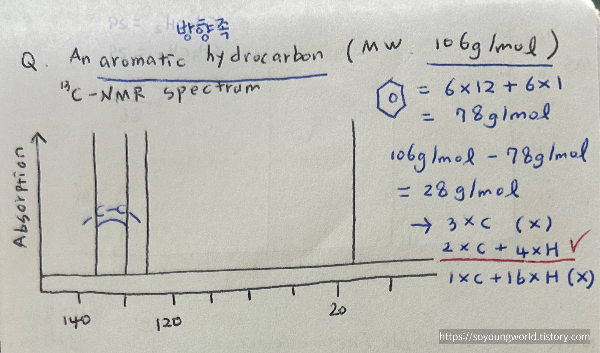 방향족
Q. An aromatic hydrocarbon (MW. 106g/mol)
¹³C-NMR spectrum
= 6×12 + 6×1
= 78g/mol
106g/mol - 78g/mol
= 28g/mol
→ 3×C (x)
2×C + 4×H ✓
1×C + 16×H (x)
Absorption
C-C
140
120
20
https://soyoungworld.tistory.com